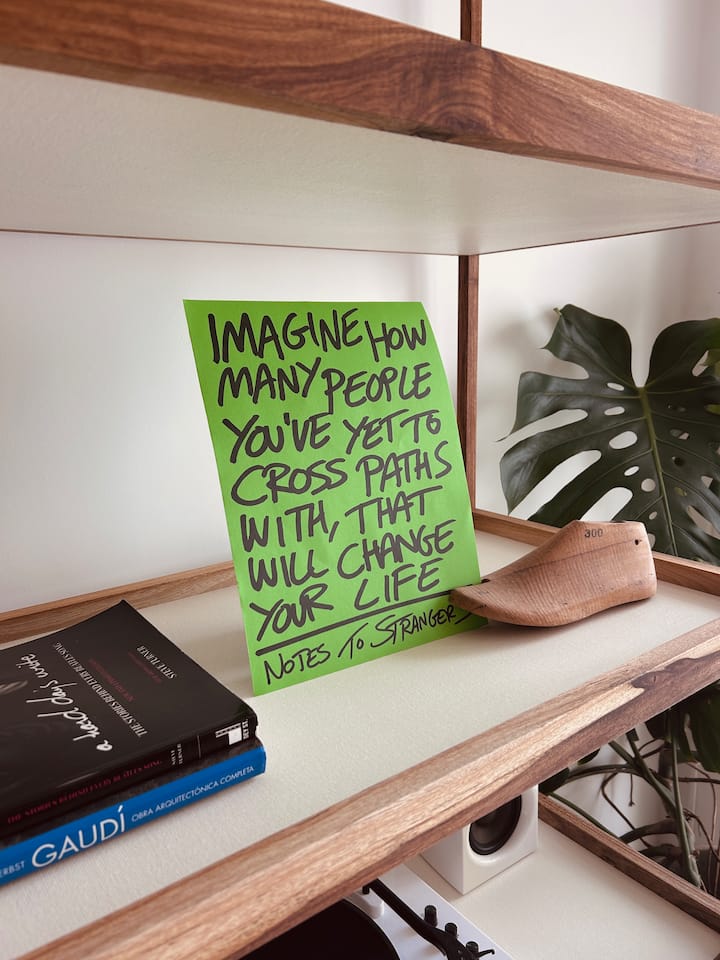 IMAGINE HOW
MANY PEOPLE
YOU'VE YET TO
CROSS PATHS
WITH, THAT
WILL CHANGE
YOUR LIFE
NOTES TO STRANGERS
300
STEVE TURNER
THE STORIES BEHIND EVERY BEATLES SONG
a hard day's write
STEVE
TURNER
THE STORIES BEHIND EVERY BEATLES SONG
GAUDÍ OBRA ARQUITECTÓNICA COMPLETA